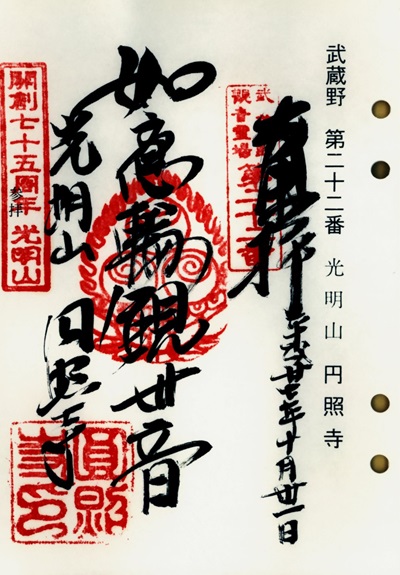 武蔵野 第二十二番 光明山 円照寺
武蔵野
観音霊場
第二十二番
平成廿七年十月卅一日
如意輪観世音
光明山 円照寺
開創七十五周年 光明山
参拝
圓照寺印